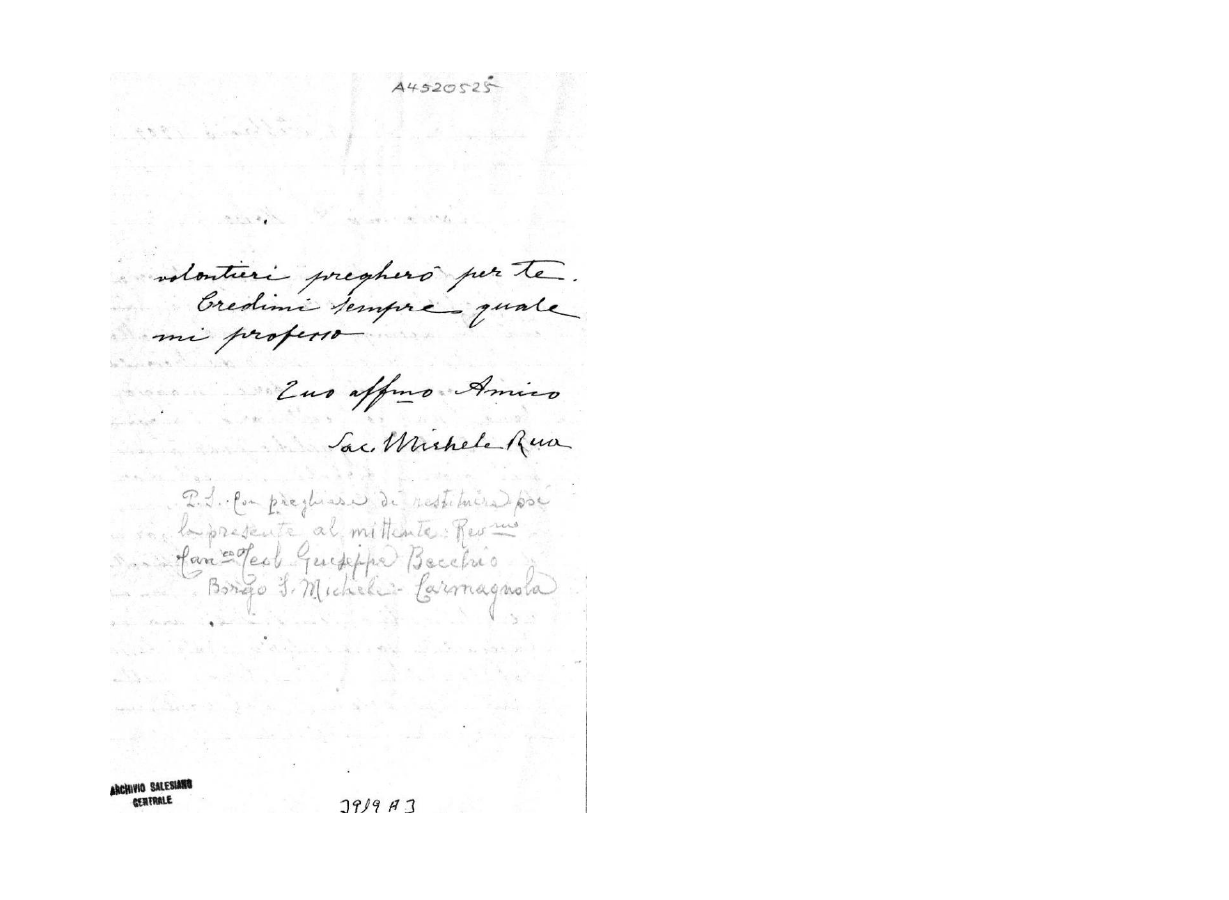 A4520525
volontieri pregherò per te.
Credimi sempre quale
mi professo
Tuo affmo Amico
Sac. Michele Rua
P.S. Con preghiera di restituire poi
la presente al mittente: Revmo
Canco Teol Giuseppe Becchio
Borgo S. Michele - Carmagnola
ARCHIVIO SALESIANO
CENTRALE
3919 A 3